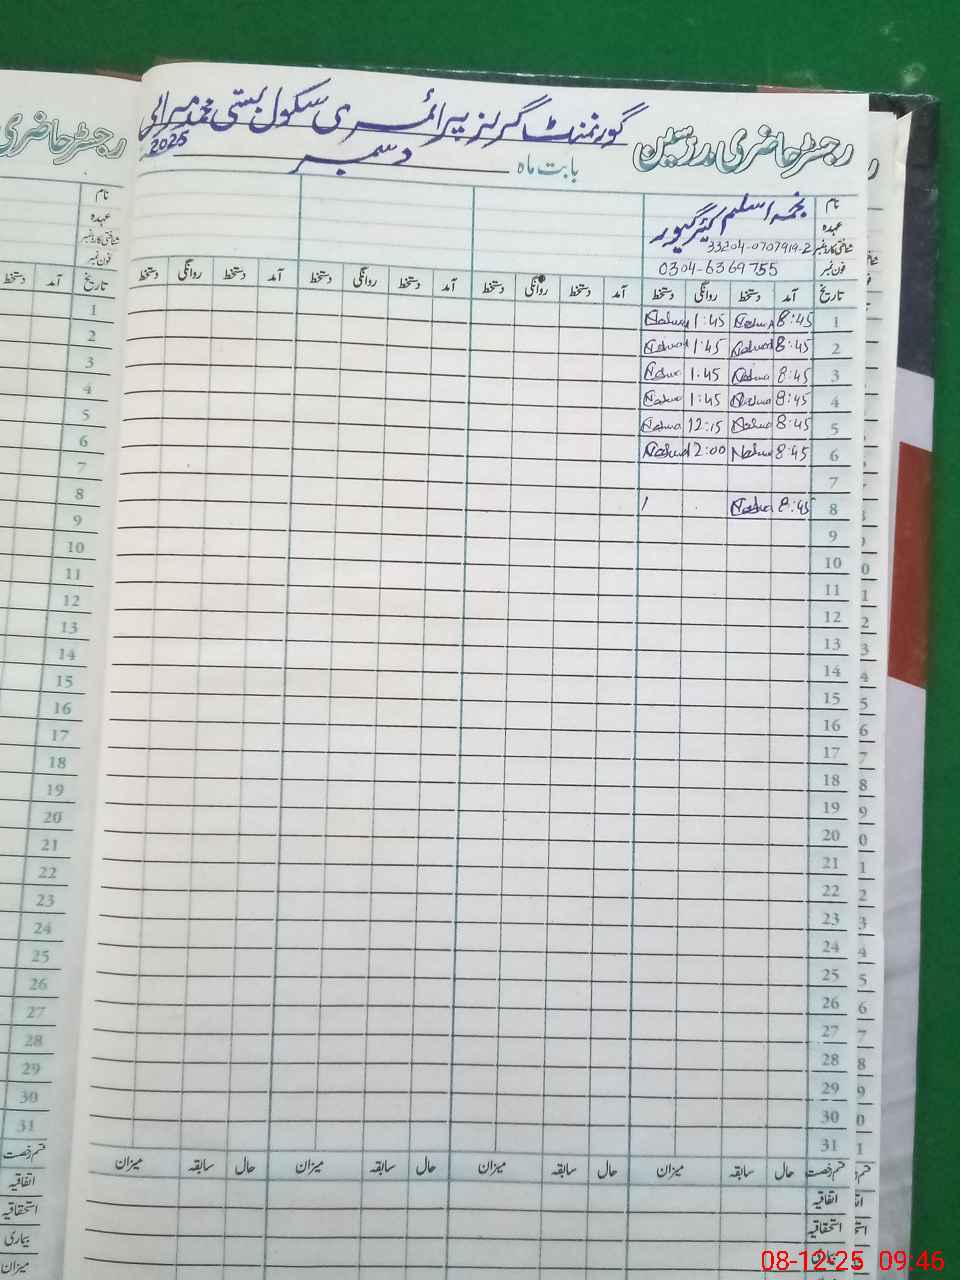 رجسٹر حاضری مدرسین گورنمنٹ گرلز پرائمری سکول بستی محمد میرالی
بابت ماہ دسمبر 2025
نام نجمہ اسلم
عہدہ کیئر گیور
شناختی کارڈ نمبر 33204-0707919-2
فون نمبر 0304-6369755
تاریخ آمد دستخط روانگی دستخط آمد دستخط روانگی دستخط آمد دستخط روانگی دستخط آمد دستخط روانگی دستخط
1 8:45 1:45
2 8:45 1:45
3 8:45 1:45
4 8:45 1:45
5 8:45 12:15
6 8:45 12:00
7
8 8:45
9
10
11
12
13
14
15
16
17
18
19
20
21
22
23
24
25
26
27
28
29
30
31
قسم رخصت حال سابقہ میزان حال سابقہ میزان حال سابقہ میزان حال سابقہ میزان
اتفاقیہ
استحقاقیہ
بیماری
رجسٹر حاضری
نام
عہدہ
شناختی کارڈ نمبر
فون نمبر
تاریخ آمد دستخط
1
2
3
4
5
6
7
8
9
10
11
12
13
14
15
16
17
18
19
20
21
22
23
24
25
26
27
28
29
30
31
قسم رخصت
اتفاقیہ
استحقاقیہ
بیماری
میزان
08-12-25 09:46